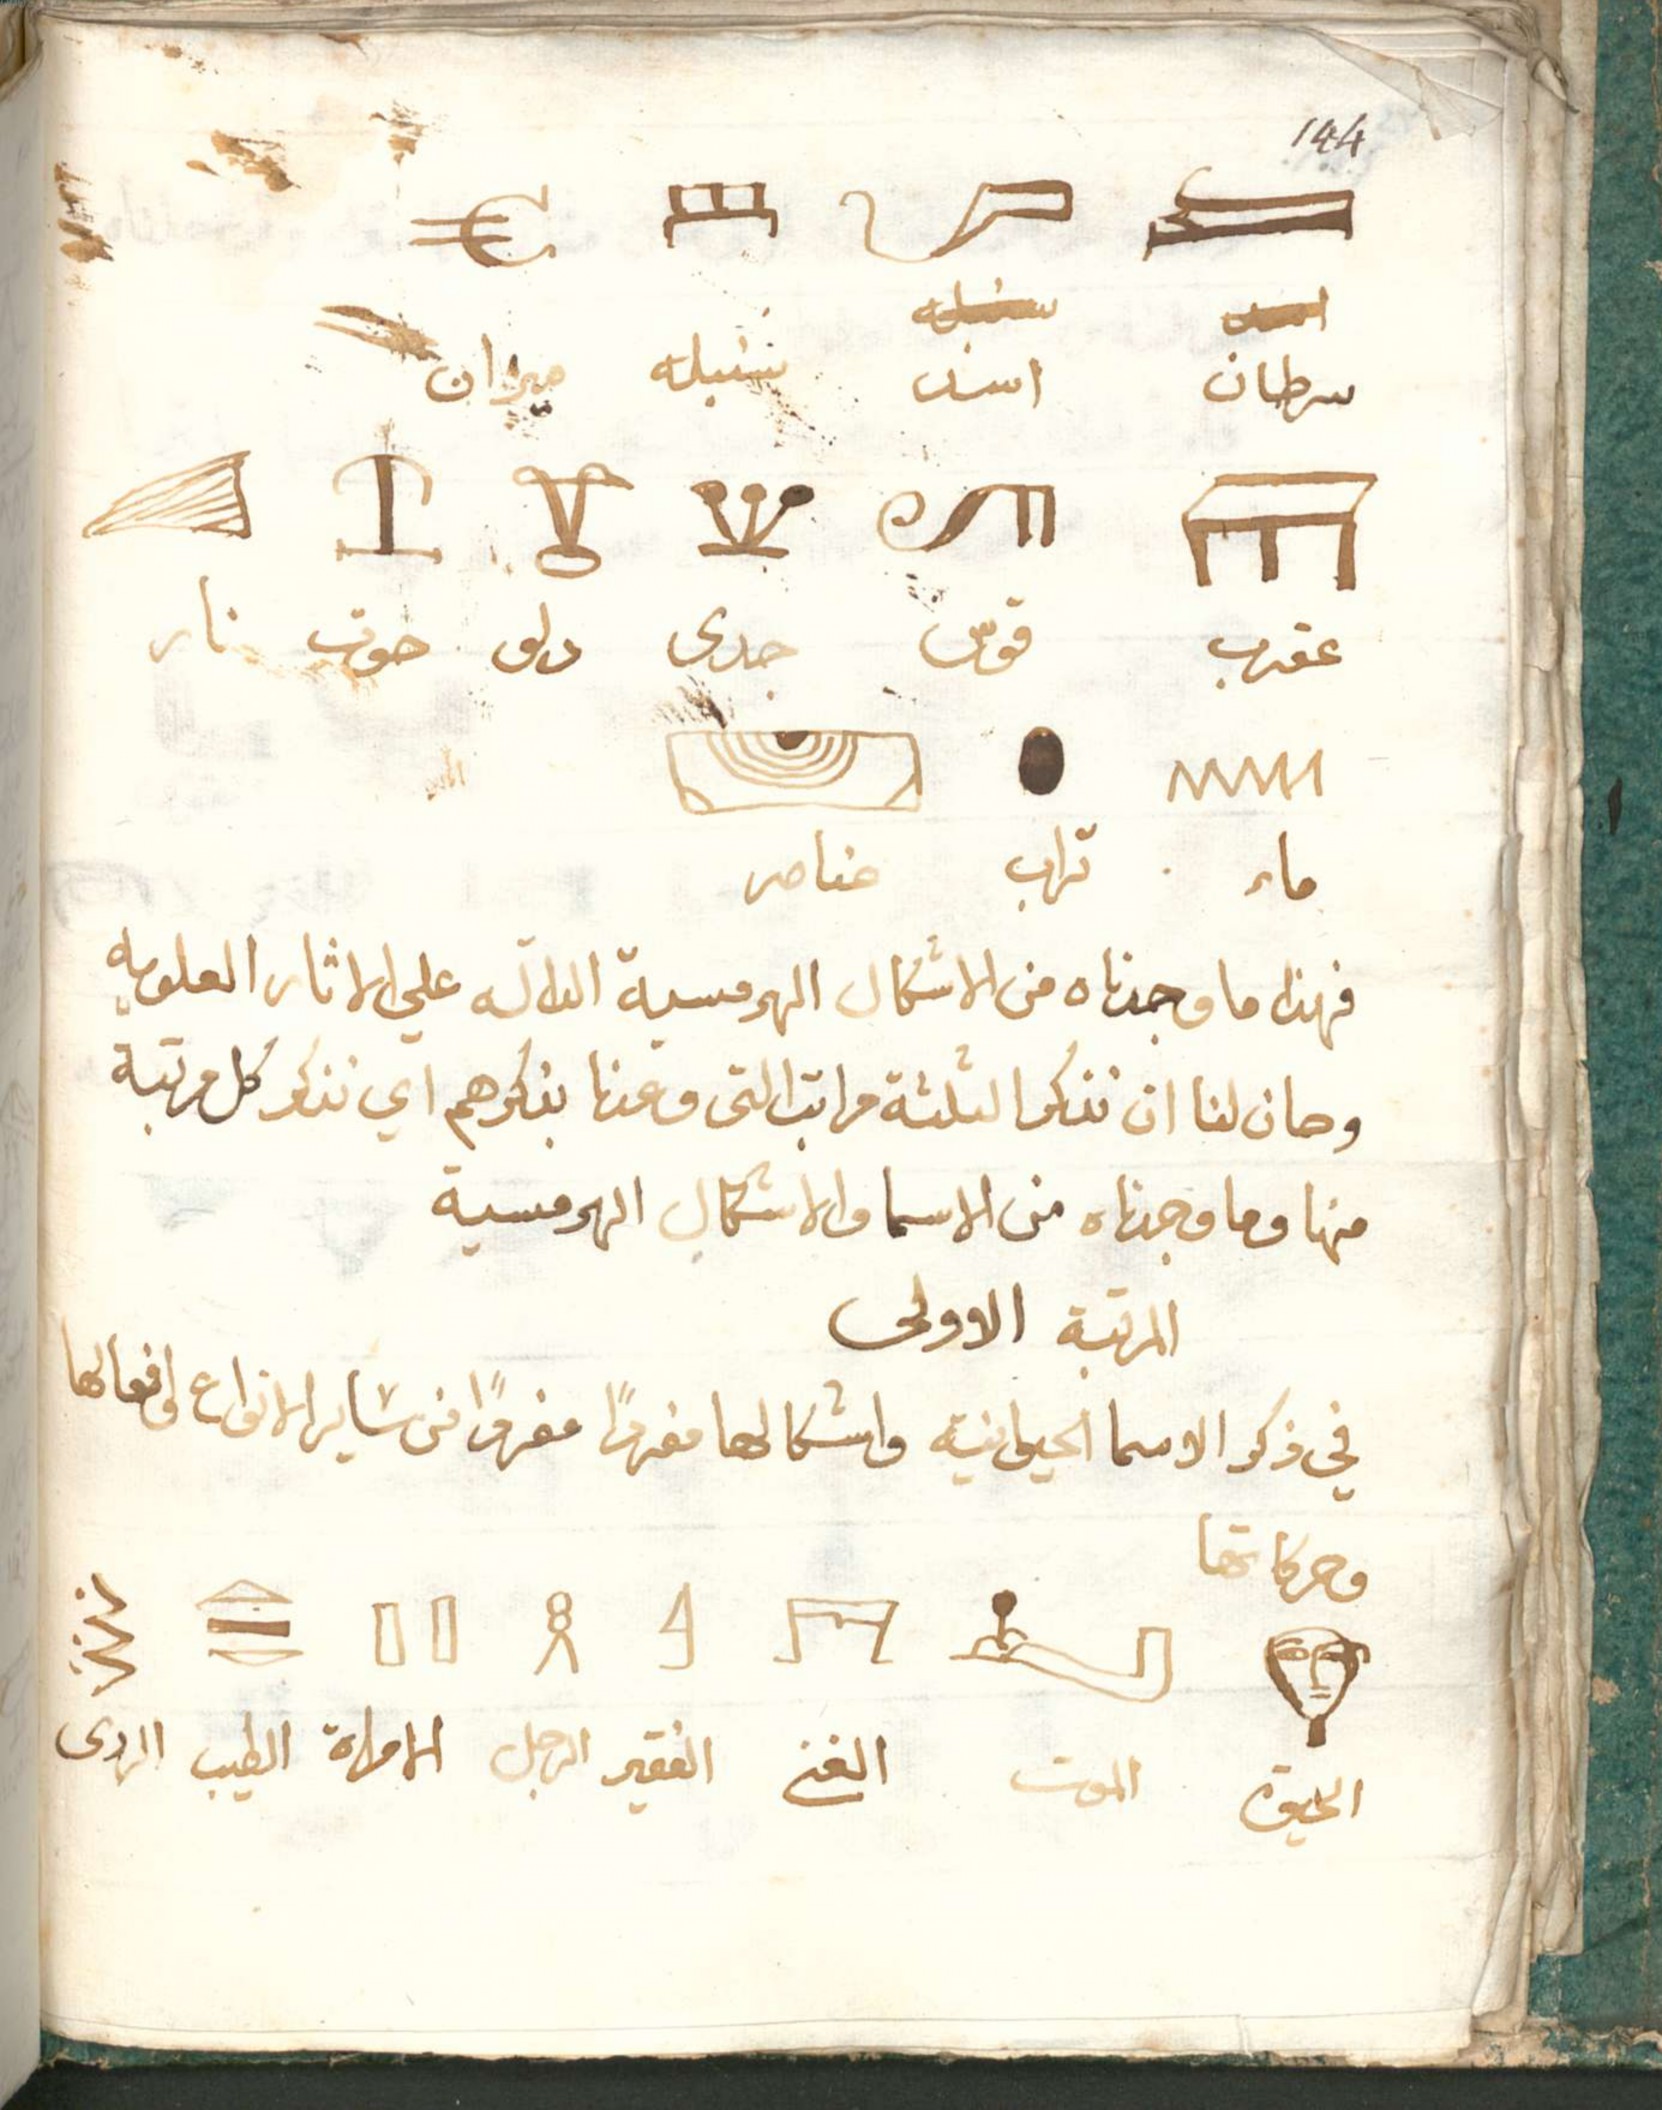 144
اسد سنبله
سرطان اسد سنبله ميزان
عقرب قوس جدى دلو حوت نار
ماء تراب عناصر
فهذا ما وجدناه من الاشكال الهرمسية الدالّه على الاثار العلويه
وحان لنا ان نذكر الثلثة مراتب التى وعدنا بذكرهم اي نذكر كل مرتبة
منها وما وجدناه من الاسما والاشكال الهرمسية
المرتبة الاولى
في ذكر الاسما الحيوانية واشكالها مفردًا مفردًا من ساير الانواع وافعالها
وحركاتها
الحيوة الموت الغني الفقير الرجل الامراة الطيب الردى